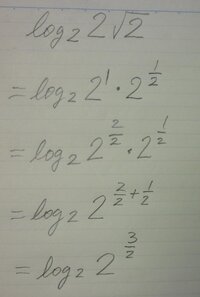 log₂ 2√2
= log₂ 2¹ · 2^(1/2)
= log₂ 2^(2/2) · 2^(1/2)
= log₂ 2^(2/2 + 1/2)
= log₂ 2^(3/2)